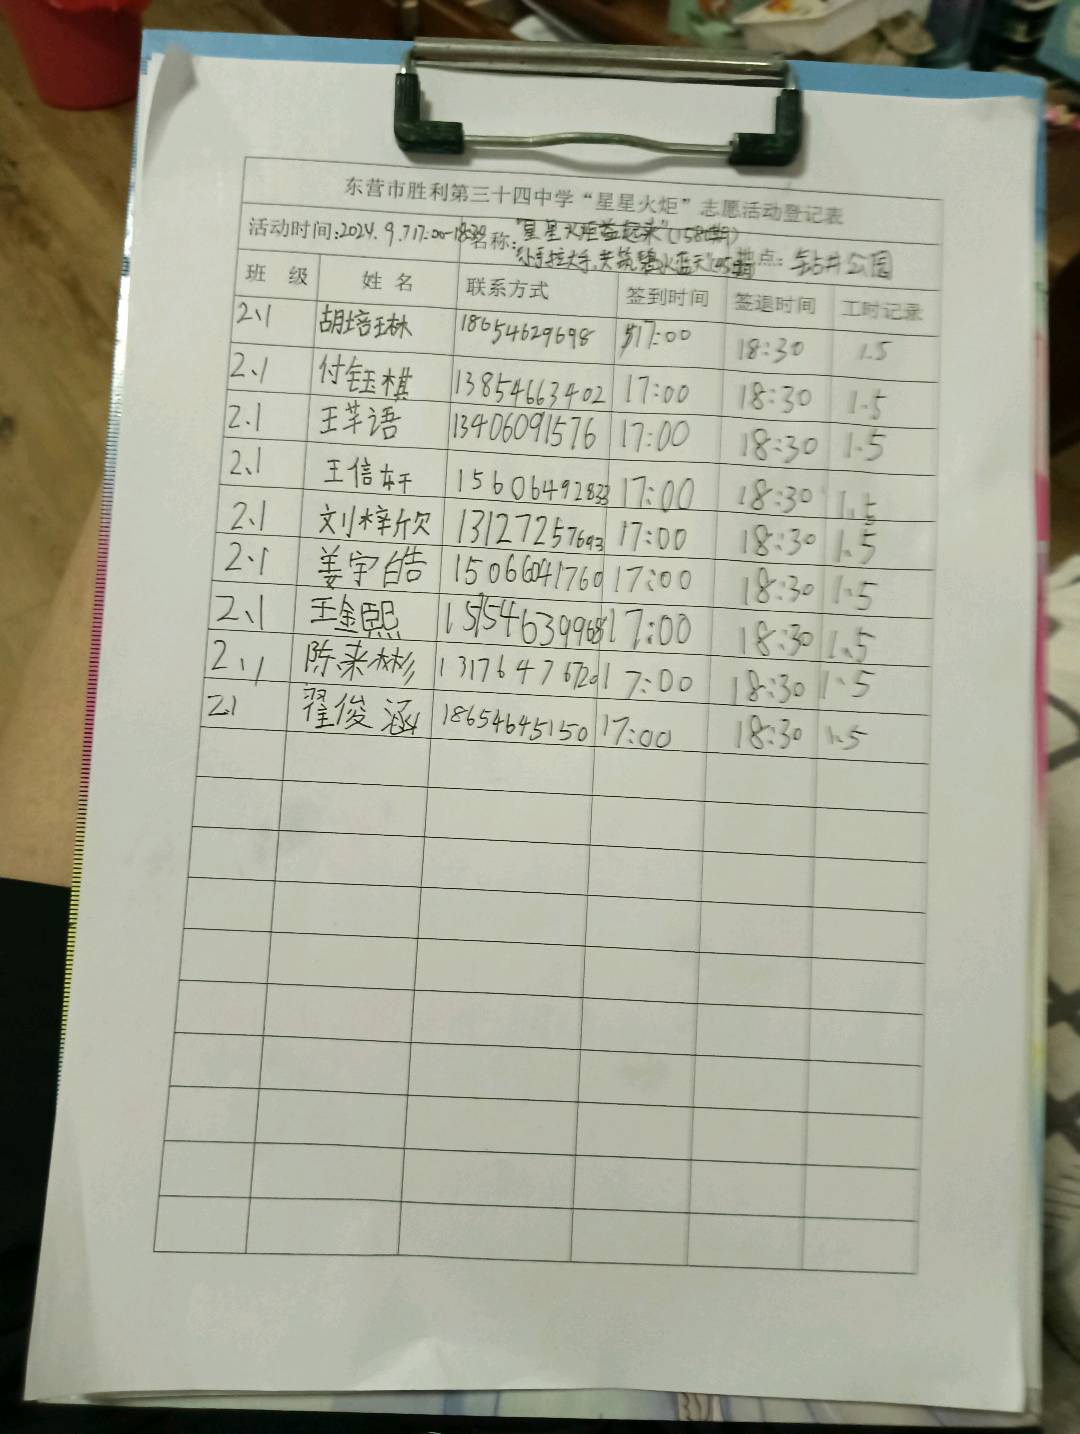 东营市胜利第三十四中学“星星火炬”志愿活动登记表
活动时间:2024.9.7 17:00-18:30 名称:“星星火炬益起来”(158期) 地点:钻井公园
“小手拉大手,共筑碧水蓝天”
班 级 姓 名 联系方式 签到时间 签退时间 工时记录
2.1 胡培琳 18654629698 17:00 18:30 1.5
2.1 付钰棋 13854663402 17:00 18:30 1.5
2.1 王芊语 13406091576 17:00 18:30 1.5
2.1 王信轩 15606492833 17:00 18:30 1.5
2.1 刘梓欣 13127257693 17:00 18:30 1.5
2.1 姜宇皓 15066041760 17:00 18:30 1.5
2.1 王金熙 17:00 18:30 1.5
2.1 陈来彬 13176476720 17:00 18:30 1.5
21 翟俊涵 18654645150 17:00 18:30 1.5